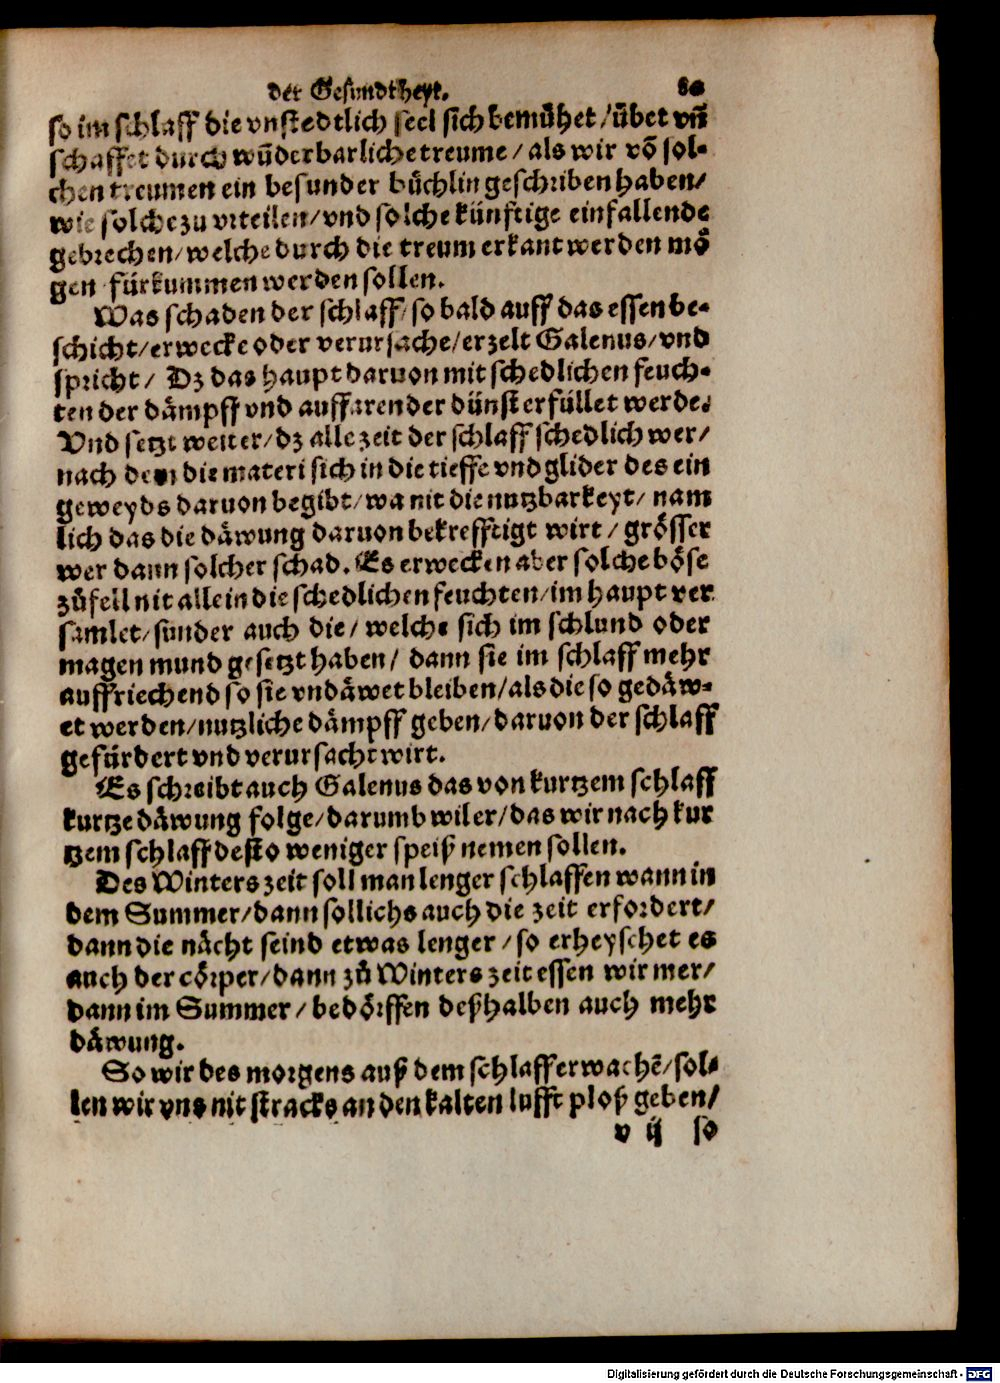 der Gesundtheyt. 80
so im schlaff die vnstedtlich seel sich bemühet/übet vñ
schaffet durch wũderbarliche treume/als wir võ sol-
chen treumen ein besunder büchlin geschriben haben/
wie solche zu vrteilen/vnd solche künftige einfallende
gebrechen/welche durch die treum erkant werden mö
gen fürkummen werden sollen.
Was schaden der schlaff/so bald auff das essen be-
schicht/erwecke oder verursache/erzelt Galenus/vnd
spricht/ Dz das haupt daruon mit schedlichen feuch-
ten der dämpff vnd auffarender dünst erfüllet werde.
Vnd setzt weiter/dz alle zeit der schlaff schedlich wer/
nach dem die materi sich in die tieffe vnd glider des ein
geweyds daruon begibt/wa nit die nutzbarkeyt/ nam
lich das die däwung daruon bekrefftigt wirt/ grösser
wer dann solcher schad. Es erwecken aber solche böse
zůfell nit allein die schedlichen feuchten/im haupt ver
samlet/sunder auch die/ welche sich im schlund oder
magen mund gesetzt haben/ dann sie im schlaff mehr
auffriechend so sie vndäwet bleiben/als die so gedäw-
et werden/nutzliche dämpff geben/daruon der schlaff
gefürdert vnd verursacht wirt.
Es schreibt auch Galenus das von kurtzem schlaff
kurtze däwung folge/darumb wil er/das wir nach kur
tzem schlaff desto weniger speiß nemen sollen.
Des Winters zeit soll man lenger schlaffen wann in
dem Summer/dann sollichs auch die zeit erfordert/
dann die nächt seind etwas lenger/so erheyschet es
auch der cörper/dann zů Winters zeit essen wir mer/
dann im Summer/bedörffen deßhalben auch mehr
däwung.
So wir des morgens auß dem schlaff erwachẽ/sol-
len wir vns nit stracks an den kalten lufft ploß geben/
v ij so
Digitalisierung gefördert durch die Deutsche Forschungsgemeinschaft - DFG